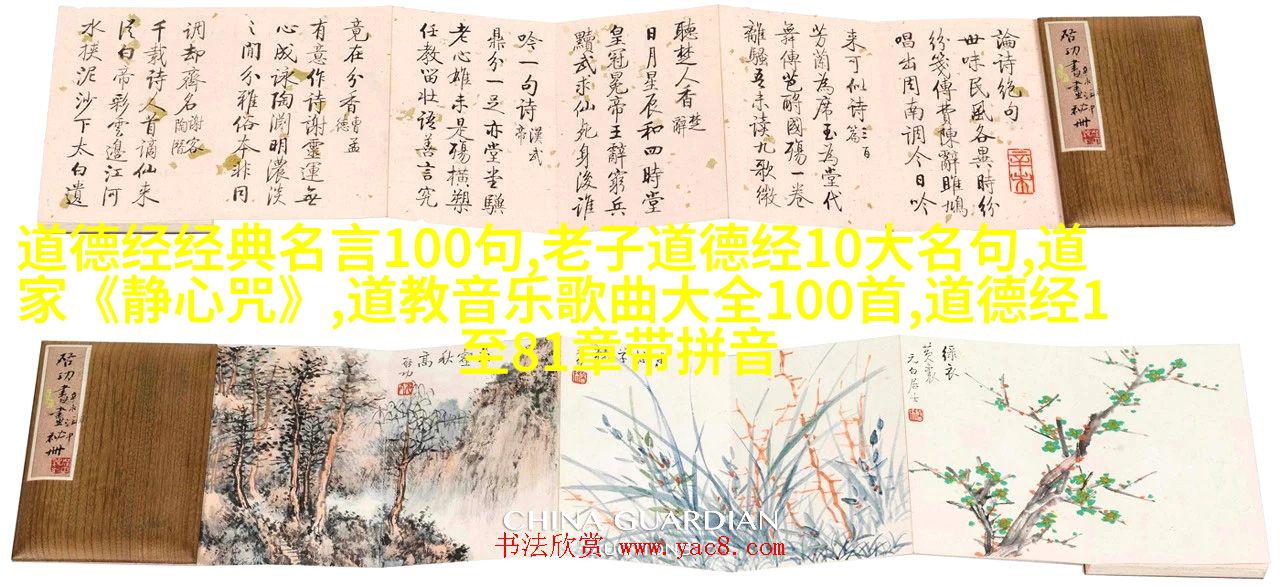 啓功書畫袖冊
論詩絕句
世味民風各異時紛
紛箋傳費陳辭雎鳩
唱出周南調今日吟
來可似詩 三百篇
芳蘭為席玉為堂代
舞傳芭酹國殤一卷
離騷吾未讀九歌微
聽楚人香 楚辭
日月星辰和四時堂
皇冠冕帝王辭窮兵
黷武求仙死身後誰
吟一句詩 漢武帝
鼎分一足亦堂堂驥
老心雄未是殤橫槊
任教留壯語善言究
竟在分香 曹孟德
有意作詩謝靈運無
心成詠陶淵明濃淡
之間分雅俗本非同
調却齊名 謝客陶潛
千載詩人首謫仙來
從白帝彩雲邊江河
水挾泥沙下太白遺
道德经经典名言100句,老子道德经10大名句,道
家《静心咒》,道教音乐歌曲大全100首,道德经1
至81章带拼音
啓功書畫袖冊
秋高
啓功
綠衣
黃裏
元白居士
CHINA GUARDIAN
书法欣赏 www.yac8.com